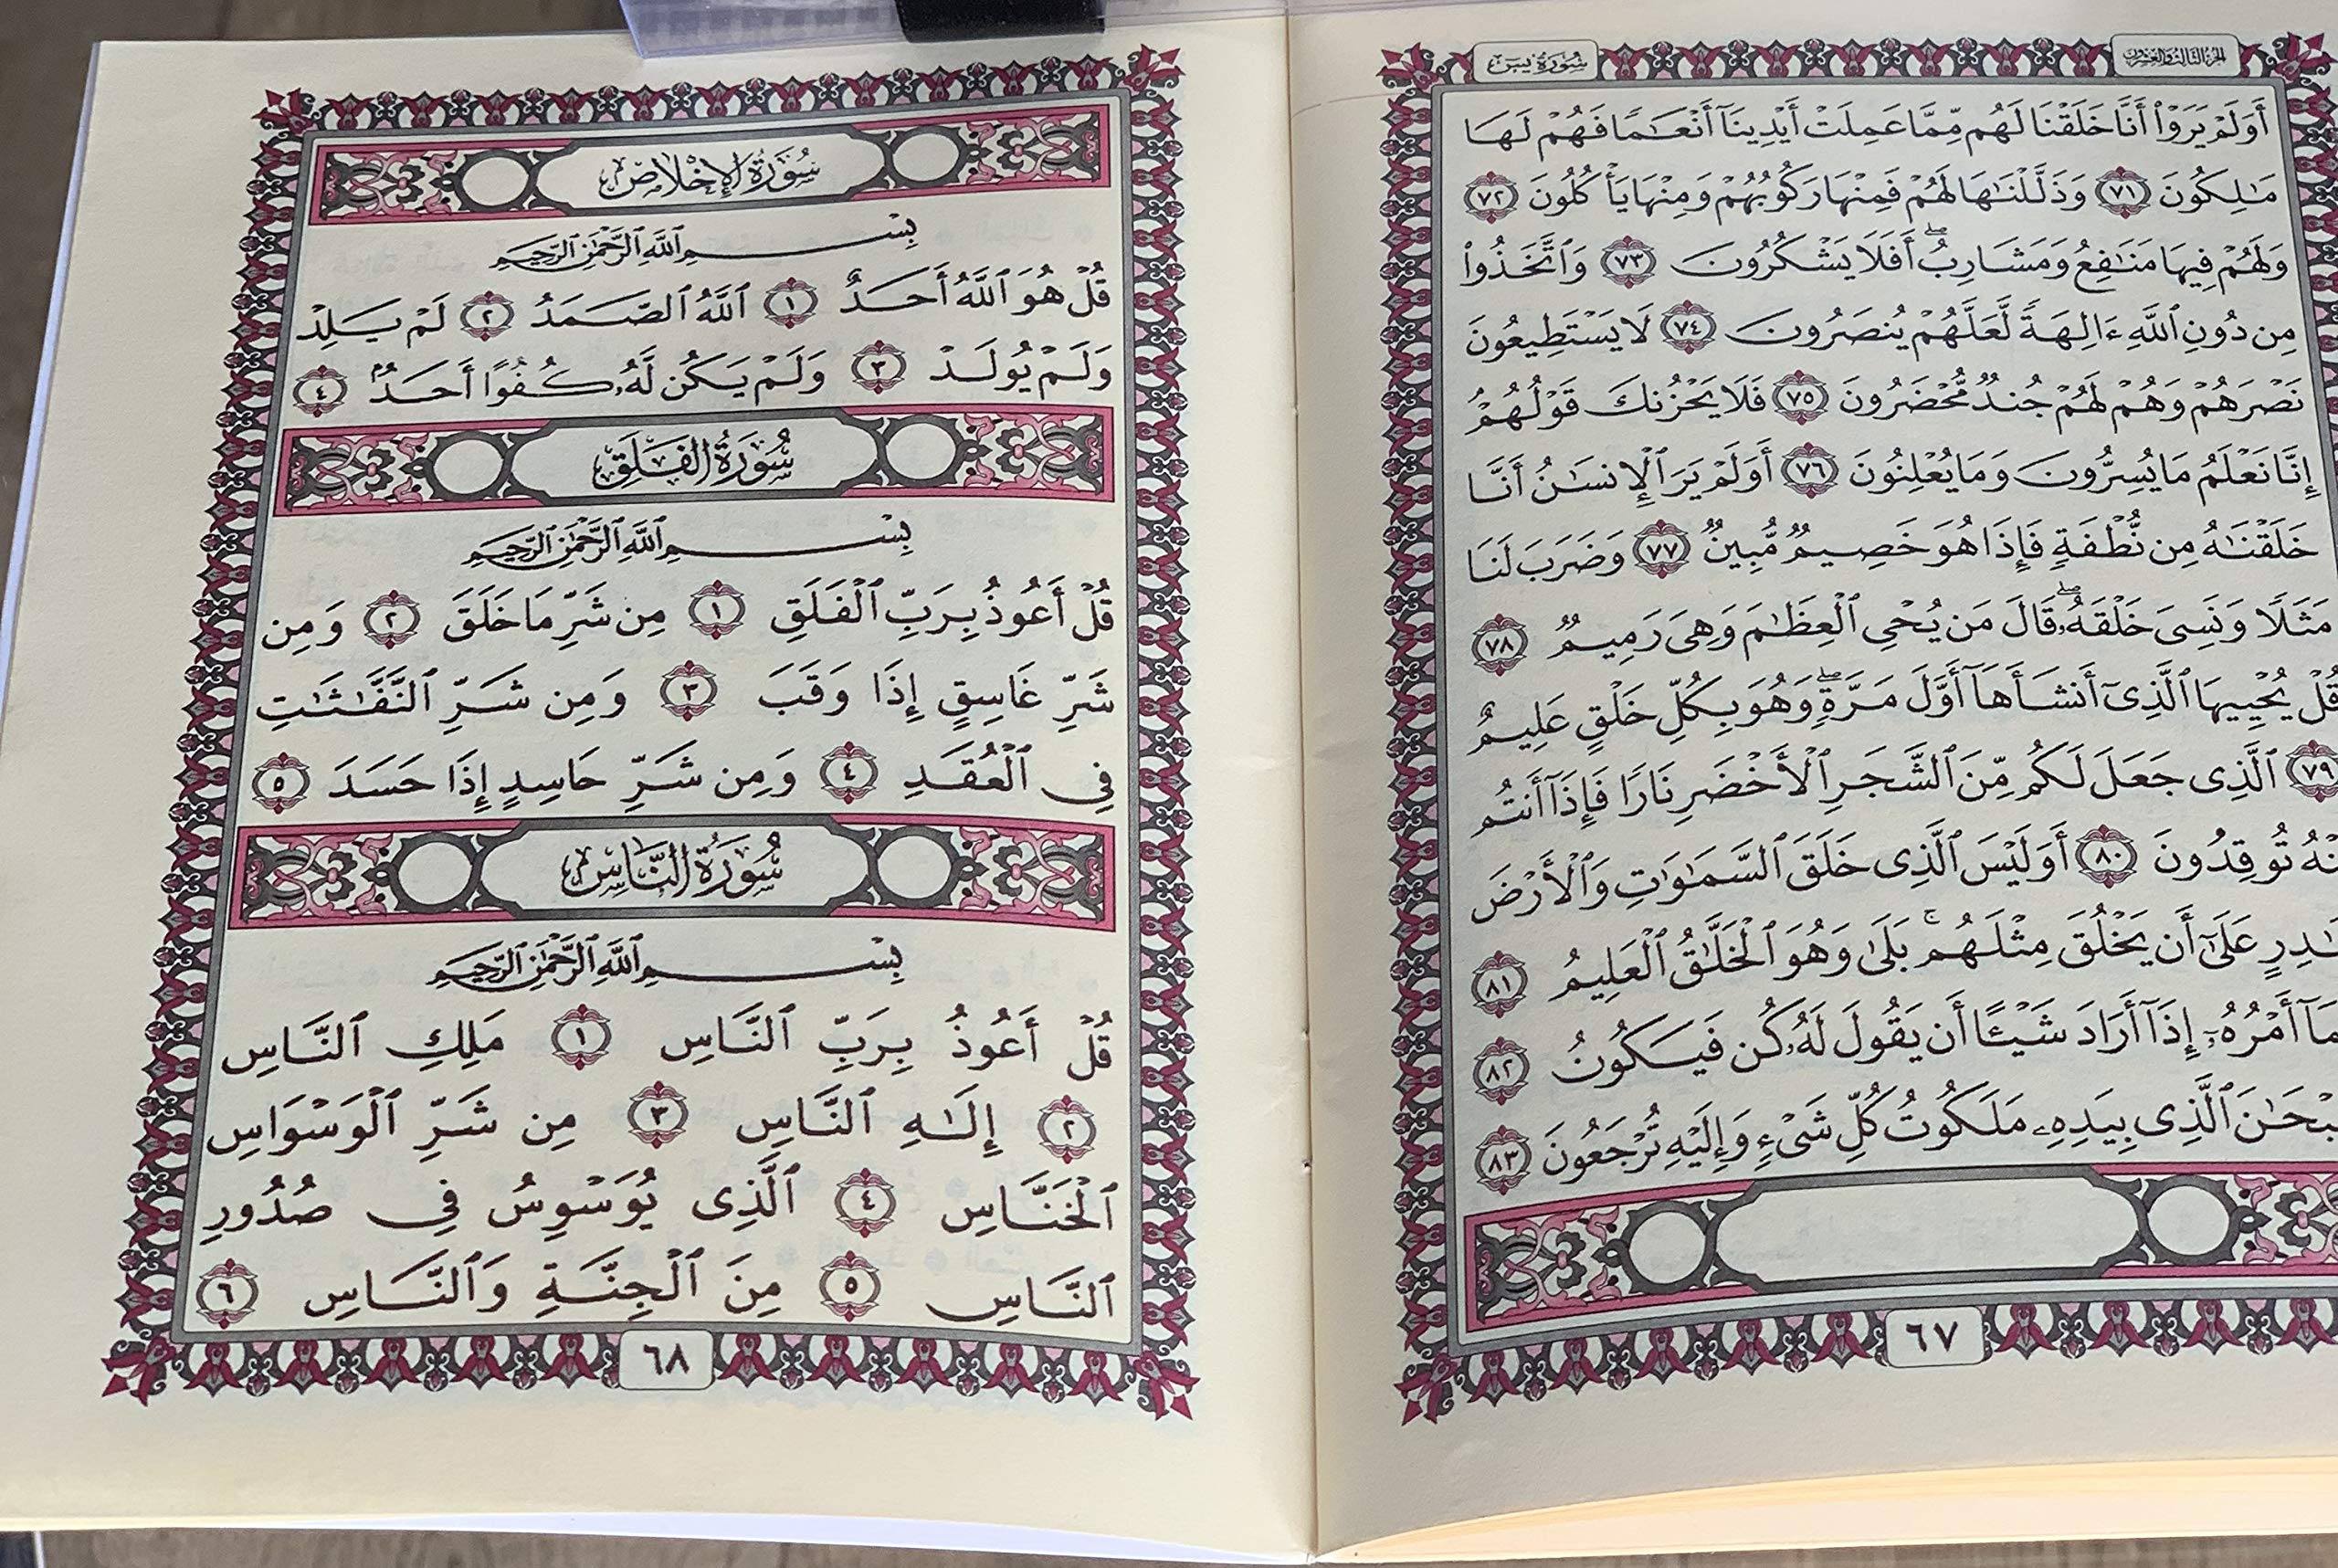 سُورَةُ يسٓ
الجزء الثالث والعشرون
أَوَلَمْ يَرَوْا۟ أَنَّا خَلَقْنَا لَهُم مِّمَّا عَمِلَتْ أَيْدِينَآ أَنْعَـٰمًا فَهُمْ لَهَا
مَـٰلِكُونَ ٧١ وَذَلَّلْنَـٰهَا لَهُمْ فَمِنْهَا رَكُوبُهُمْ وَمِنْهَا يَأْكُلُونَ ٧٢
وَلَهُمْ فِيهَا مَنَـٰفِعُ وَمَشَارِبُ ۖ أَفَلَا يَشْكُرُونَ ٧٣ وَٱتَّخَذُوا۟
مِن دُونِ ٱللَّهِ ءَالِهَةً لَّعَلَّهُمْ يُنصَرُونَ ٧٤ لَا يَسْتَطِيعُونَ
نَصْرَهُمْ وَهُمْ لَهُمْ جُندٌ مُّحْضَرُونَ ٧٥ فَلَا يَحْزُنكَ قَوْلُهُمْ
إِنَّا نَعْلَمُ مَا يُسِرُّونَ وَمَا يُعْلِنُونَ ٧٦ أَوَلَمْ يَرَ ٱلْإِنسَـٰنُ أَنَّا
خَلَقْنَـٰهُ مِن نُّطْفَةٍ فَإِذَا هُوَ خَصِيمٌ مُّبِينٌ ٧٧ وَضَرَبَ لَنَا
مَثَلًا وَنَسِىَ خَلْقَهُۥ ۖ قَالَ مَن يُحْىِ ٱلْعِظَـٰمَ وَهِىَ رَمِيمٌ ٧٨
قُلْ يُحْيِيهَا ٱلَّذِىٓ أَنشَأَهَآ أَوَّلَ مَرَّةٍ ۖ وَهُوَ بِكُلِّ خَلْقٍ عَلِيمٌ
٧٩ ٱلَّذِى جَعَلَ لَكُم مِّنَ ٱلشَّجَرِ ٱلْأَخْضَرِ نَارًا فَإِذَآ أَنتُم
نْهُ تُوقِدُونَ ٨٠ أَوَلَيْسَ ٱلَّذِى خَلَقَ ٱلسَّمَـٰوَٰتِ وَٱلْأَرْضَ
ـٰدِرٍ عَلَىٰٓ أَن يَخْلُقَ مِثْلَهُم ۚ بَلَىٰ وَهُوَ ٱلْخَلَّـٰقُ ٱلْعَلِيمُ ٨١
مَآ أَمْرُهُۥٓ إِذَآ أَرَادَ شَيْـًٔا أَن يَقُولَ لَهُۥ كُن فَيَكُونُ ٨٢
بْحَـٰنَ ٱلَّذِى بِيَدِهِۦ مَلَكُوتُ كُلِّ شَىْءٍ وَإِلَيْهِ تُرْجَعُونَ ٨٣
٦٧
سُورَةُ الإِخْلَاصِ
بِسْمِ ٱللَّهِ ٱلرَّحْمَـٰنِ ٱلرَّحِيمِ
قُلْ هُوَ ٱللَّهُ أَحَدٌ ١ ٱللَّهُ ٱلصَّمَدُ ٢ لَمْ يَلِدْ
وَلَمْ يُولَدْ ٣ وَلَمْ يَكُن لَّهُۥ كُفُوًا أَحَدٌۢ ٤
سُورَةُ الْفَلَقِ
بِسْمِ ٱللَّهِ ٱلرَّحْمَـٰنِ ٱلرَّحِيمِ
قُلْ أَعُوذُ بِرَبِّ ٱلْفَلَقِ ١ مِن شَرِّ مَا خَلَقَ ٢ وَمِن
شَرِّ غَاسِقٍ إِذَا وَقَبَ ٣ وَمِن شَرِّ ٱلنَّفَّـٰثَـٰتِ
فِى ٱلْعُقَدِ ٤ وَمِن شَرِّ حَاسِدٍ إِذَا حَسَدَ ٥
سُورَةُ النَّاسِ
بِسْمِ ٱللَّهِ ٱلرَّحْمَـٰنِ ٱلرَّحِيمِ
قُلْ أَعُوذُ بِرَبِّ ٱلنَّاسِ ١ مَلِكِ ٱلنَّاسِ
٢ إِلَـٰهِ ٱلنَّاسِ ٣ مِن شَرِّ ٱلْوَسْوَاسِ
ٱلْخَنَّاسِ ٤ ٱلَّذِى يُوَسْوِسُ فِى صُدُورِ
ٱلنَّاسِ ٥ مِنَ ٱلْجِنَّةِ وَٱلنَّاسِ ٦
٦٨